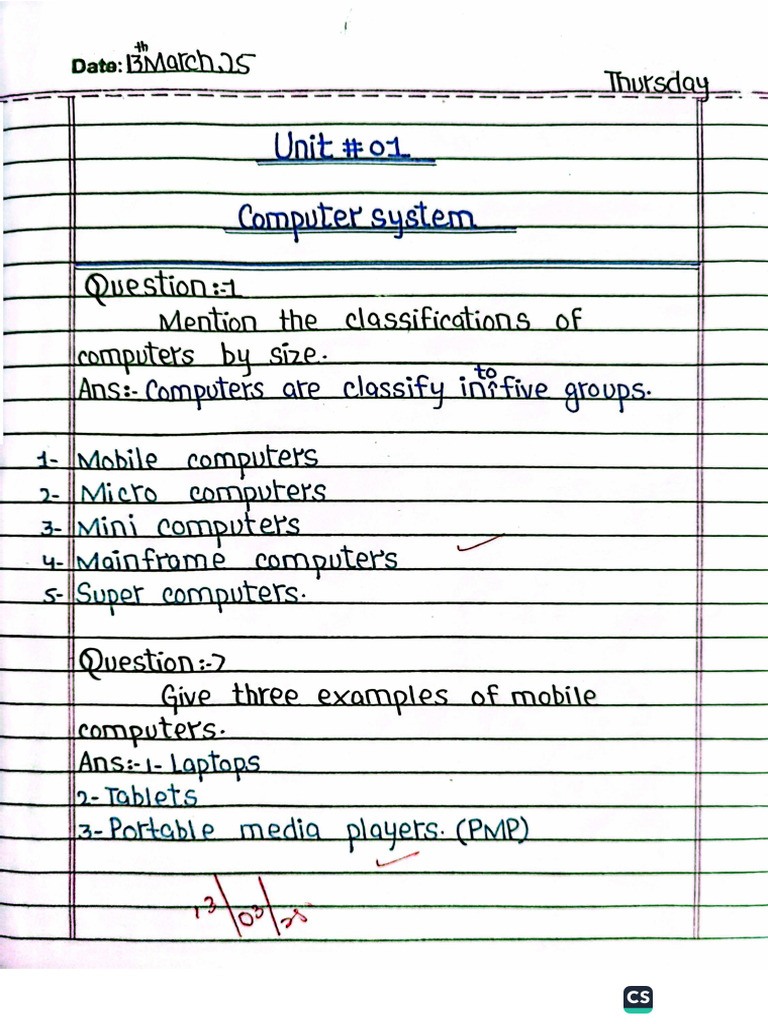 Date: 13th March, 25
Thursday
Unit # 01
Computer system
Question:-1
Mention the classifications of
computers by size.
Ans:- Computers are classify into five groups.
1- Mobile computers
2- Micro computers
3- Mini computers
4- Mainframe computers
5- Super computers.
Question:-2
Give three examples of mobile
computers.
Ans:-1- Laptops
2- Tablets
3- Portable media players. (PMP)
13/03/25
CS